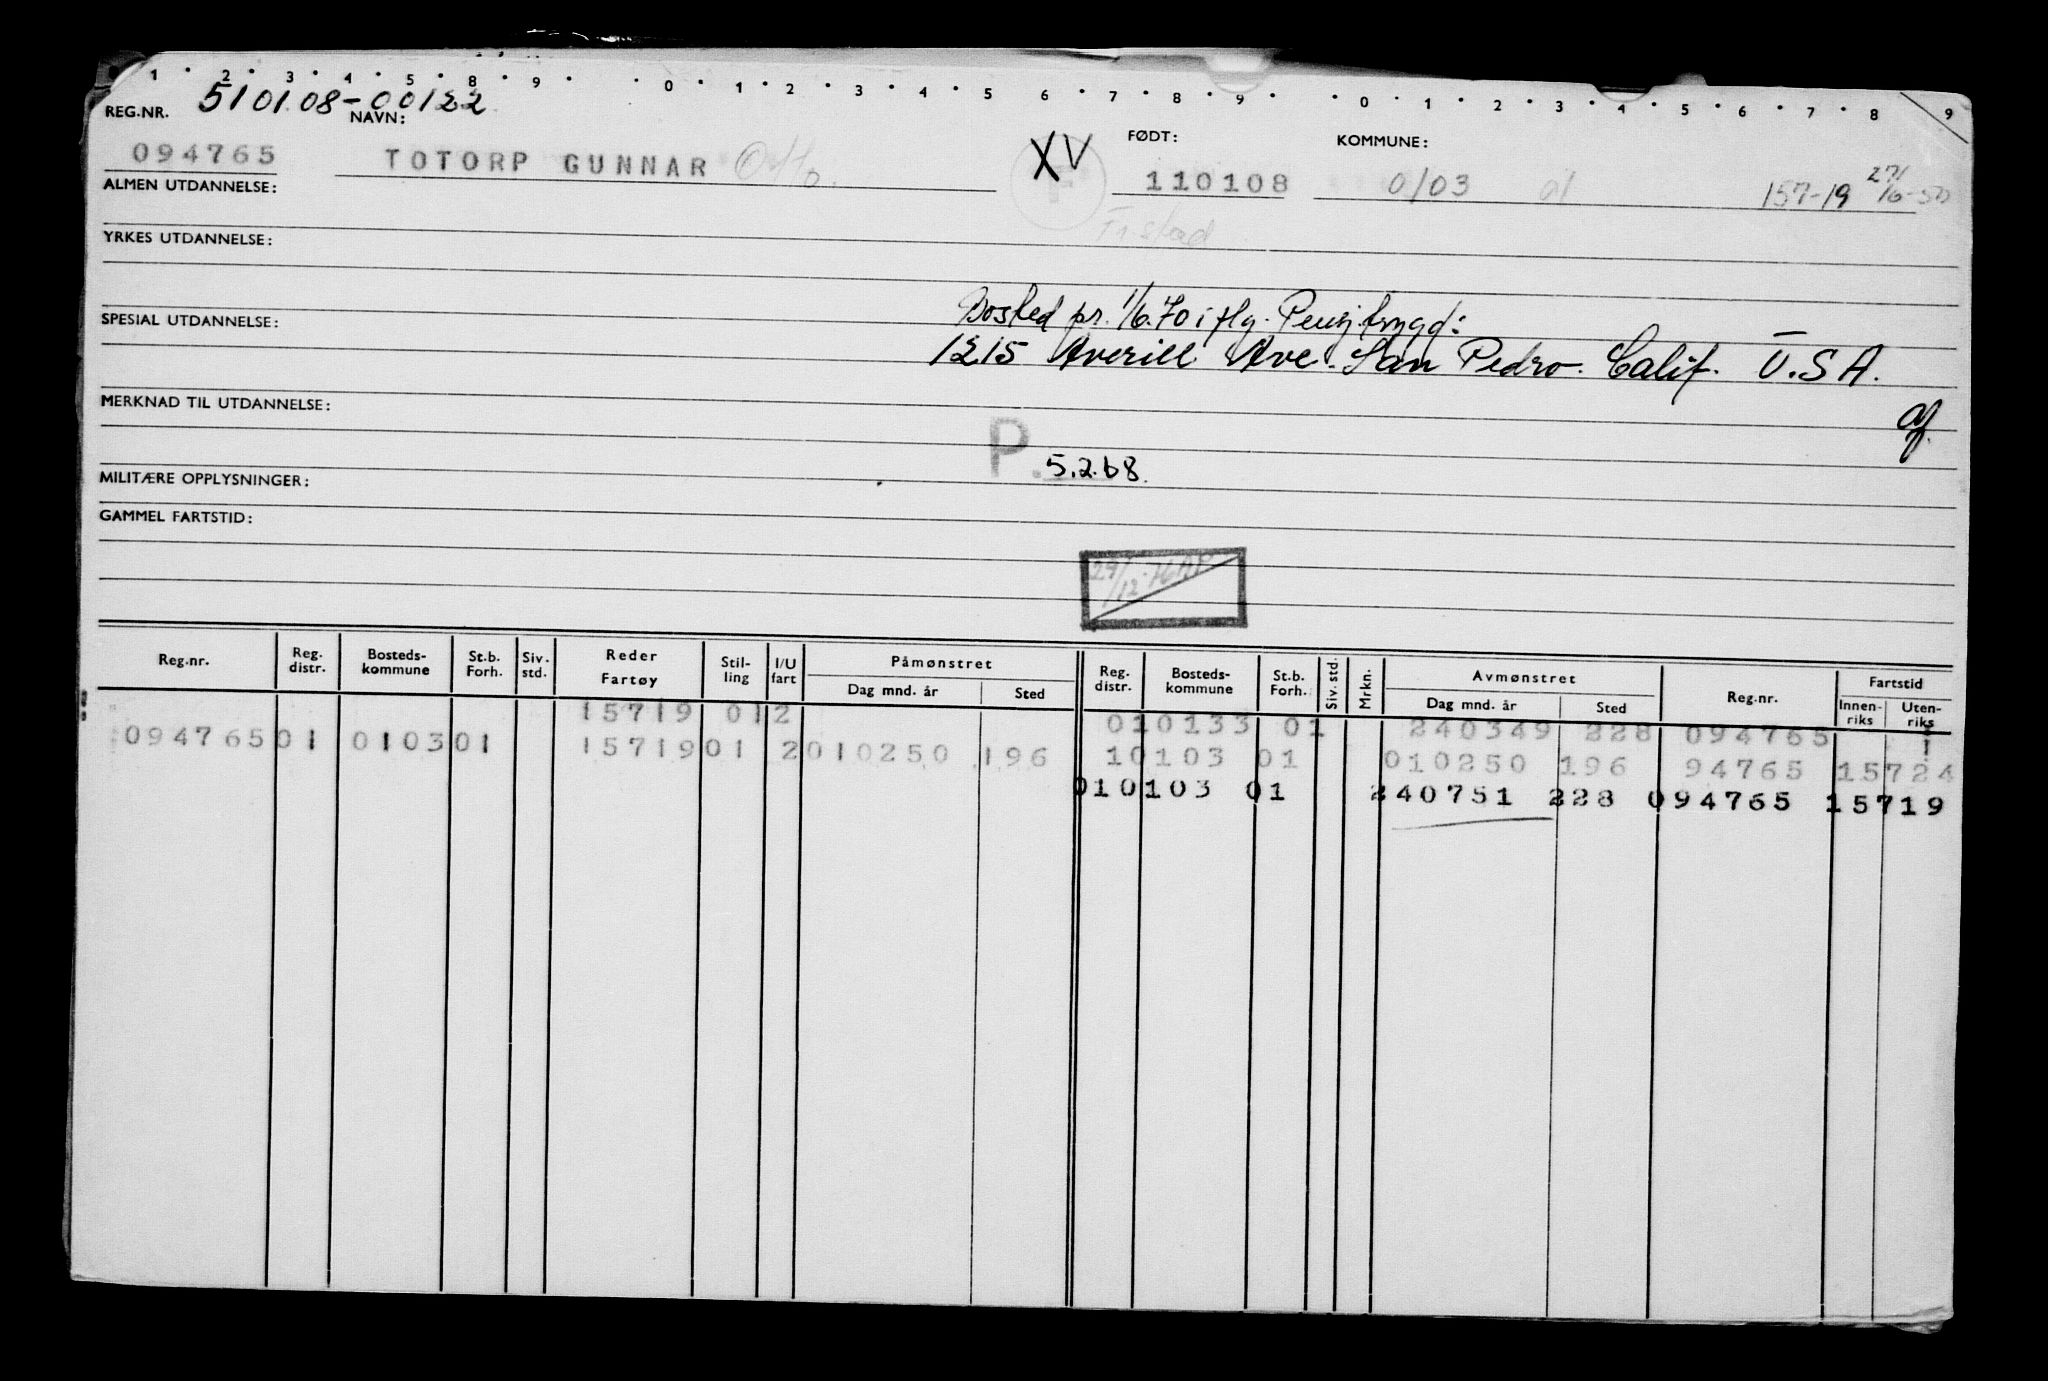 1 • 2 • 3 • 4 • 5 • 8 • 9 • • 0 • 1 • 2 • 3 • 4 • 5 • 6 • 7 • 8 • 9 • • 0 • 1 • 2 • 3 • 4 • 5 • 6 • 7 • 8 • 9
REG.NR. 510108-00122 NAVN: FØDT: KOMMUNE:
094765 TOTORP GUNNAR Otto. XV 110108 0103 01 157-19
ALMEN UTDANNELSE:
YRKES UTDANNELSE:
Bosted pr. 1/6.70 i flg. Pensj.trygd:
SPESIAL UTDANNELSE:
1215 Averill Ave. San Pedro. Calif. U.S.A.
MERKNAD TIL UTDANNELSE:
P. 5.2.68.
MILITÆRE OPPLYSNINGER:
GAMMEL FARTSTID:
29/12
Reg.nr. Reg. distr. Bosteds-kommune St.b. Forh. Siv. std. Reder Fartøy Stil-ling I/U fart Påmønstret Dag mnd. år Sted Reg. distr. Bosteds-kommune St.b. Forh. Siv. std. Mrkn. Avmønstret Dag mnd. år Sted Reg.nr. Fartstid Innen-riks Uten-riks
15719 012 010133 01 240349 228 094765
094765 01 0103 01 15719 01 2 010250 196 10103 01 010250 196 94765 15724
010103 01 240751 228 094765 15719